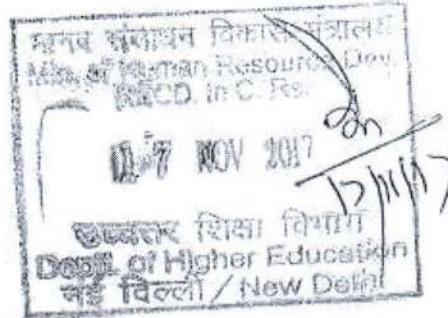 मानव संसाधन विकास मंत्रालय
Min. of Human Resource Dev.
RECD. In C. R.
17 NOV 2017
17/11/17
उच्चतर शिक्षा विभाग
Deptt. of Higher Education
नई दिल्ली / New Delhi